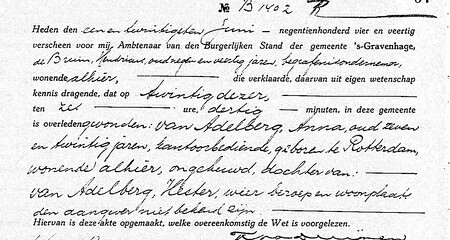 № B 1402
Heden den een en twintigsten Juni — negentienhonderd vier en veertig
verscheen voor mij, Ambtenaar van den Burgerlijken Stand der gemeente 's-Gravenhage,
de Bruin, Hendrikus, oud negen en veertig jaren, begrafenisondernemer,
wonende alhier, — die verklaarde, daarvan uit eigen wetenschap
kennis dragende, dat op twintig dezer, —
ten zes — ure, dertig — minuten, in deze gemeente
is overleden gevonden: van Adelberg, Anna, oud zeven
en twintig jaren, kantoorbediende, geboren te Rotterdam,
wonende alhier, ongehuwd, dochter van: —
van Adelberg, Hester, wier beroep en woonplaats
den aangever niet bekend zijn. —
Hiervan is deze akte opgemaakt, welke overeenkomstig de Wet is voorgelezen.